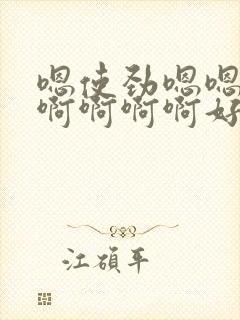 嗯使劲嗯嗯
啊啊啊啊好
江碩平